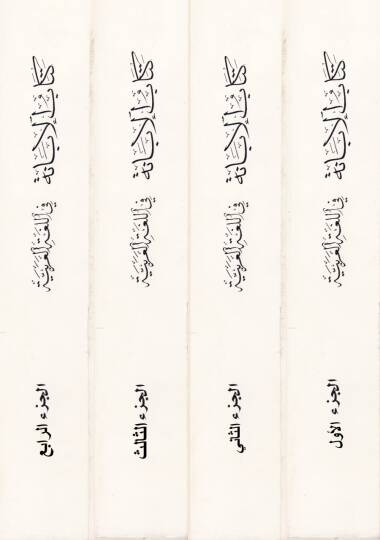 كتاب الإبانة
في اللغة العربية
الجزء الأول
كتاب الإبانة
في اللغة العربية
الجزء الثاني
كتاب الإبانة
في اللغة العربية
الجزء الثالث
كتاب الإبانة
في اللغة العربية
الجزء الرابع